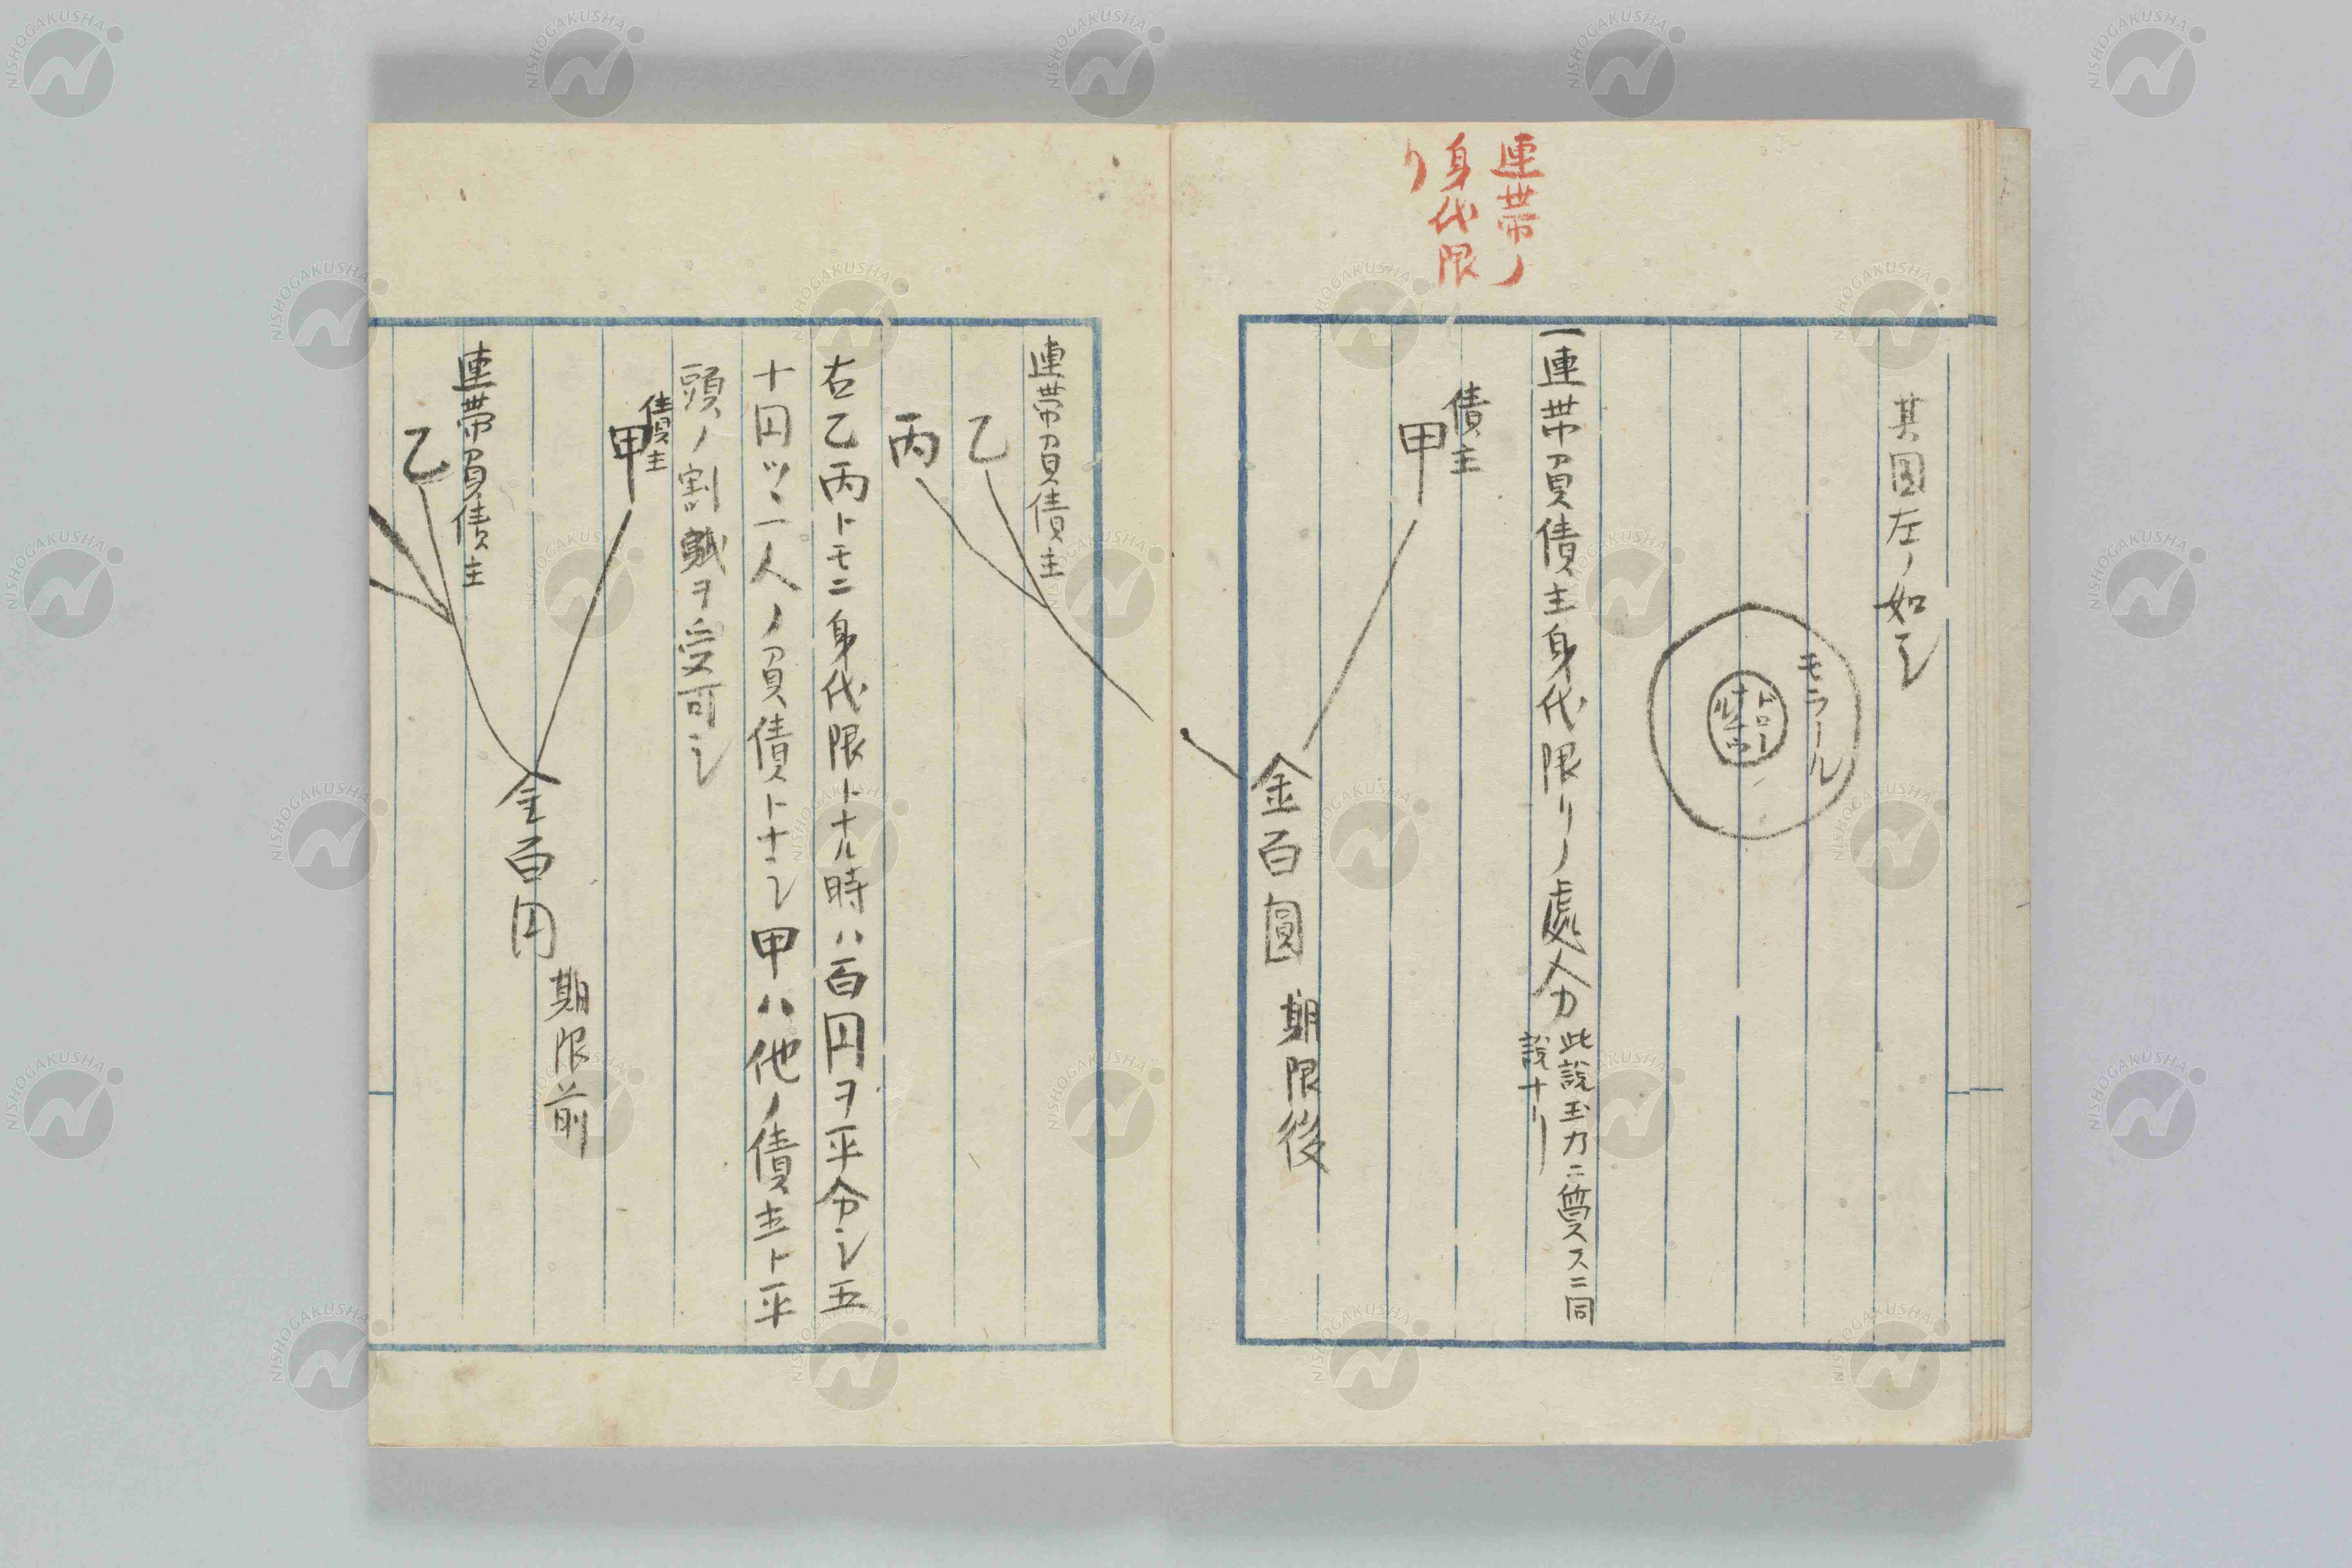 連帯ノ
身代限
り
其図左ノ如シ
モラール
ドロー
ナチウ
ル
一連帯負債主身代限リノ處分
此説玉乃ニ質スニ同
説ナリ
債主
甲
金百圓 期限後
連帯負債主
乙
丙
右乙丙トモニ身代限トナル時ハ百円ヲ平分シ五
十円ツヽ一人ノ負債トナシ甲ハ他ノ債主ト平
頭ノ割賦ヲ受可シ
債主
甲
金百円 期限前
連帯負債主
乙
NISHOGAKUSHA